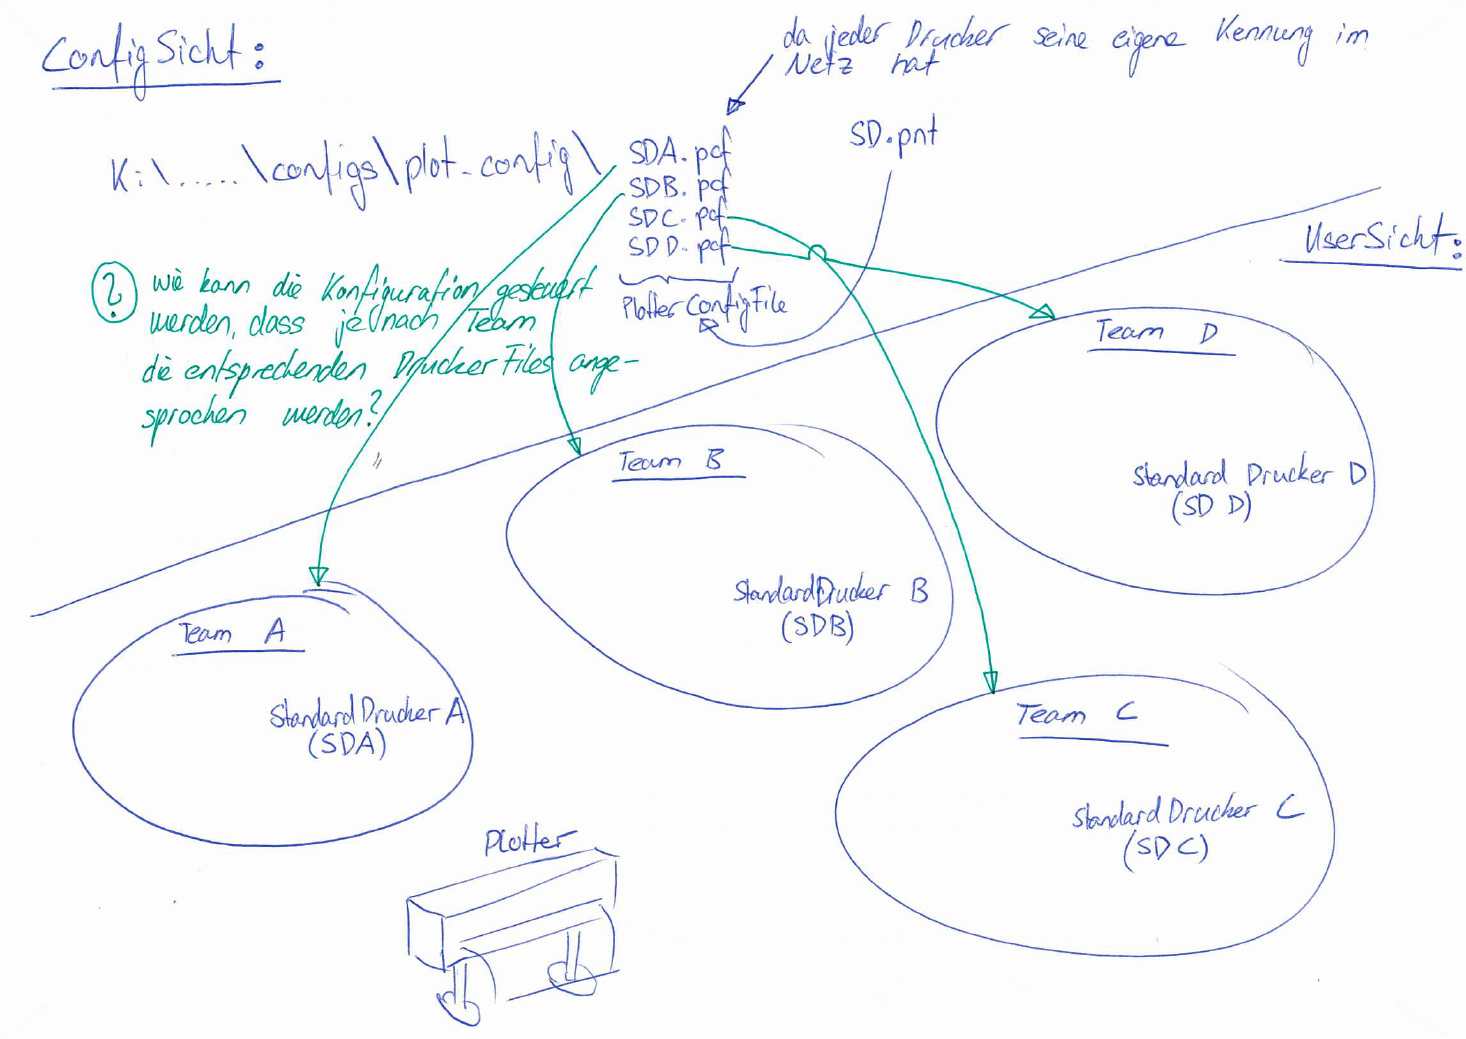 ConfigSicht:
da jeder Drucker seine eigene Kennung im
Netz hat
K:\.....\configs\plot-config\
SDA.pcf
SDB.pcf
SDC.pcf
SDD.pcf
SD.pnt
PlotterConfigFile
UserSicht:
? wie kann die Konfiguration gesteuert
werden, dass je nach Team
die entsprechenden DruckerFiles ange-
sprochen werden?
Team D
Standard Drucker D
(SD D)
Team B
StandardDrucker B
(SDB)
Team A
StandardDrucker A
(SDA)
Team C
StandardDrucker C
(SDC)
Plotter